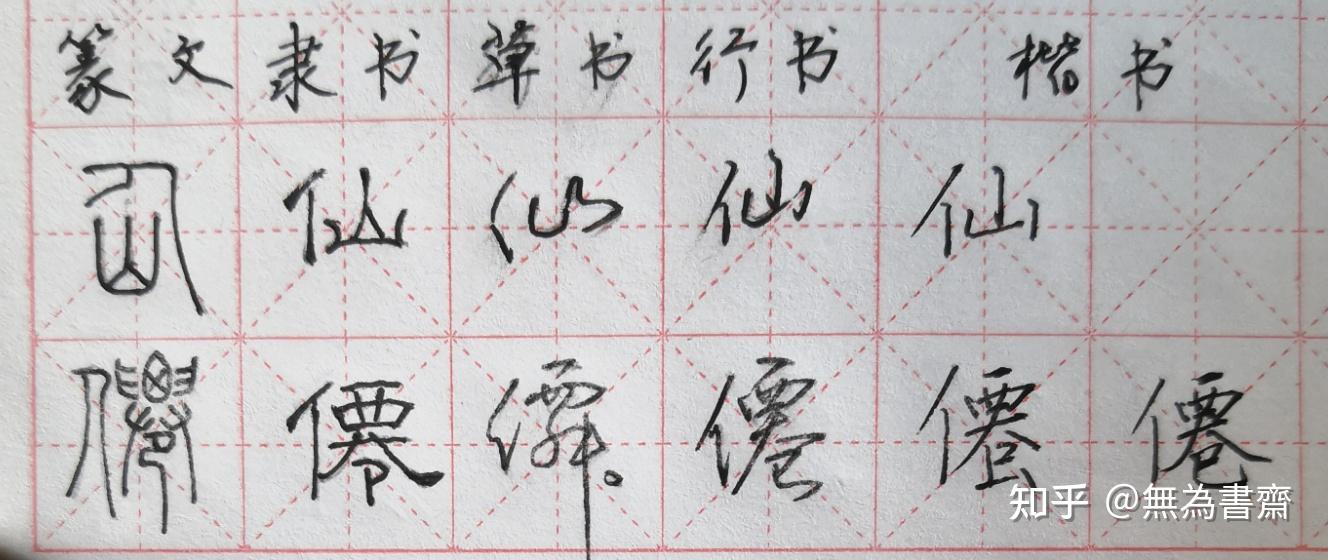 篆文 隶书 草书 行书 楷书
仙 仙 仙 仙 仙
僊 僊 僊 僊 僊 僊
知乎 @無為書齋